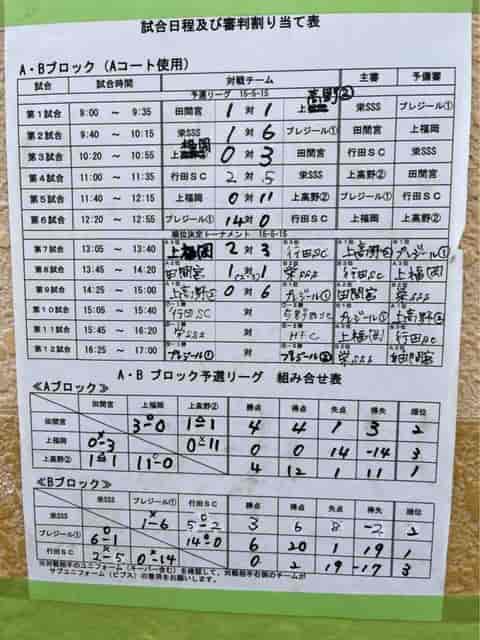 試合日程及び審判割り当て表
A・Bブロック（Aコート使用）
試合 試合時間 対戦チーム 主審 予備審
予選リーグ 15-5-15
第1試合 9:00 ～ 9:35 田間宮 1 対 1 上高野② 栄SSS プレジール①
第2試合 9:40 ～ 10:15 栄SSS 1 対 6 プレジール① 田間宮 上福岡
第3試合 10:20 ～ 10:55 上福岡 0 対 3 田間宮 行田SC 栄SSS
第4試合 11:00 ～ 11:35 行田SC 2 対 5 栄SSS 上高野② 田間宮
第5試合 11:40 ～ 12:15 上福岡 0 対 11 上高野② プレジール① 行田SC
第6試合 12:20 ～ 12:55 プレジール① 14 対 0 行田SC 上福岡 上高野②
順位決定トーナメント 15-5-15
第7試合 13:05 ～ 13:40 上福岡 2 対 3 行田SC 上高野② プレジール①
第8試合 13:45 ～ 14:20 田間宮 1 対 1 栄SSS 行田SC 上福岡
第9試合 14:25 ～ 15:00 上高野② 0 対 6 プレジール① 田間宮 栄SSS
第10試合 15:05 ～ 15:40 行田SC 対 プレジール① 上高野②
第11試合 15:45 ～ 16:20 栄SSS 対 HFC 上福岡 行田SC
第12試合 16:25 ～ 17:00 プレジール① 対 プレジール② 栄SSS 田間宮
A・B ブロック予選リーグ 組み合せ表
≪Aブロック≫
田間宮 上福岡 上高野② 勝点 得点 失点 得失 順位
田間宮 3-0 1-1 4 4 1 3 2
上福岡 0-3 0-11 0 0 14 -14 3
上高野② 1-1 11-0 4 12 1 11 1
≪Bブロック≫
栄SSS プレジール① 行田SC 勝点 得点 失点 得失 順位
栄SSS 1-6 5-2 3 6 8 -2 2
プレジール① 6-1 14-0 6 20 1 19 1
行田SC 2-5 0-14 0 2 19 -17 3
※対戦相手のユニフォーム（キーパー含む）を確認して、対戦相手右側のチームが
サブユニフォーム（ビブス）の着用をお願いします。